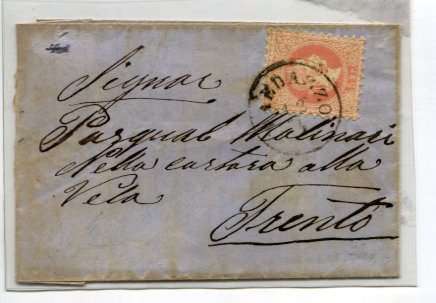 Signor
Pasqual Molinari
Nella cartara alla
Vela
Trento